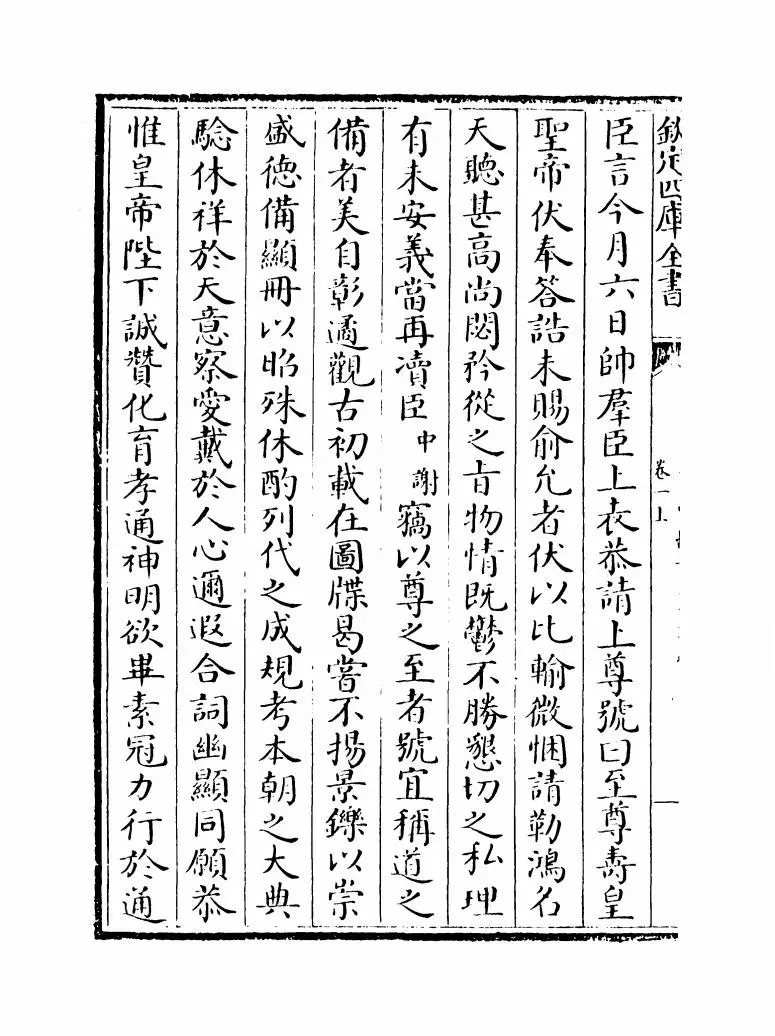 欽定四庫全書
卷一上
臣言今月六日帥羣臣上表恭請上尊號曰至尊壽皇
聖帝伏奉答誥未賜俞允者伏以比輸微悃請勒鴻名
天聽甚高尚閟矜從之旨物情既鬱不勝懇切之私理
有未安義當再瀆臣中謝竊以尊之至者號宜稱道之
備者美自彰遹觀古初載在圖牒曷嘗不揚景鑠以崇
盛徳備顯冊以昭殊休酌列代之成規考本朝之大典
驗休祥於天意察愛戴於人心邇遐合詞幽顯同願恭
惟皇帝陛下誠贊化育孝通神明欲畢素冠力行於通